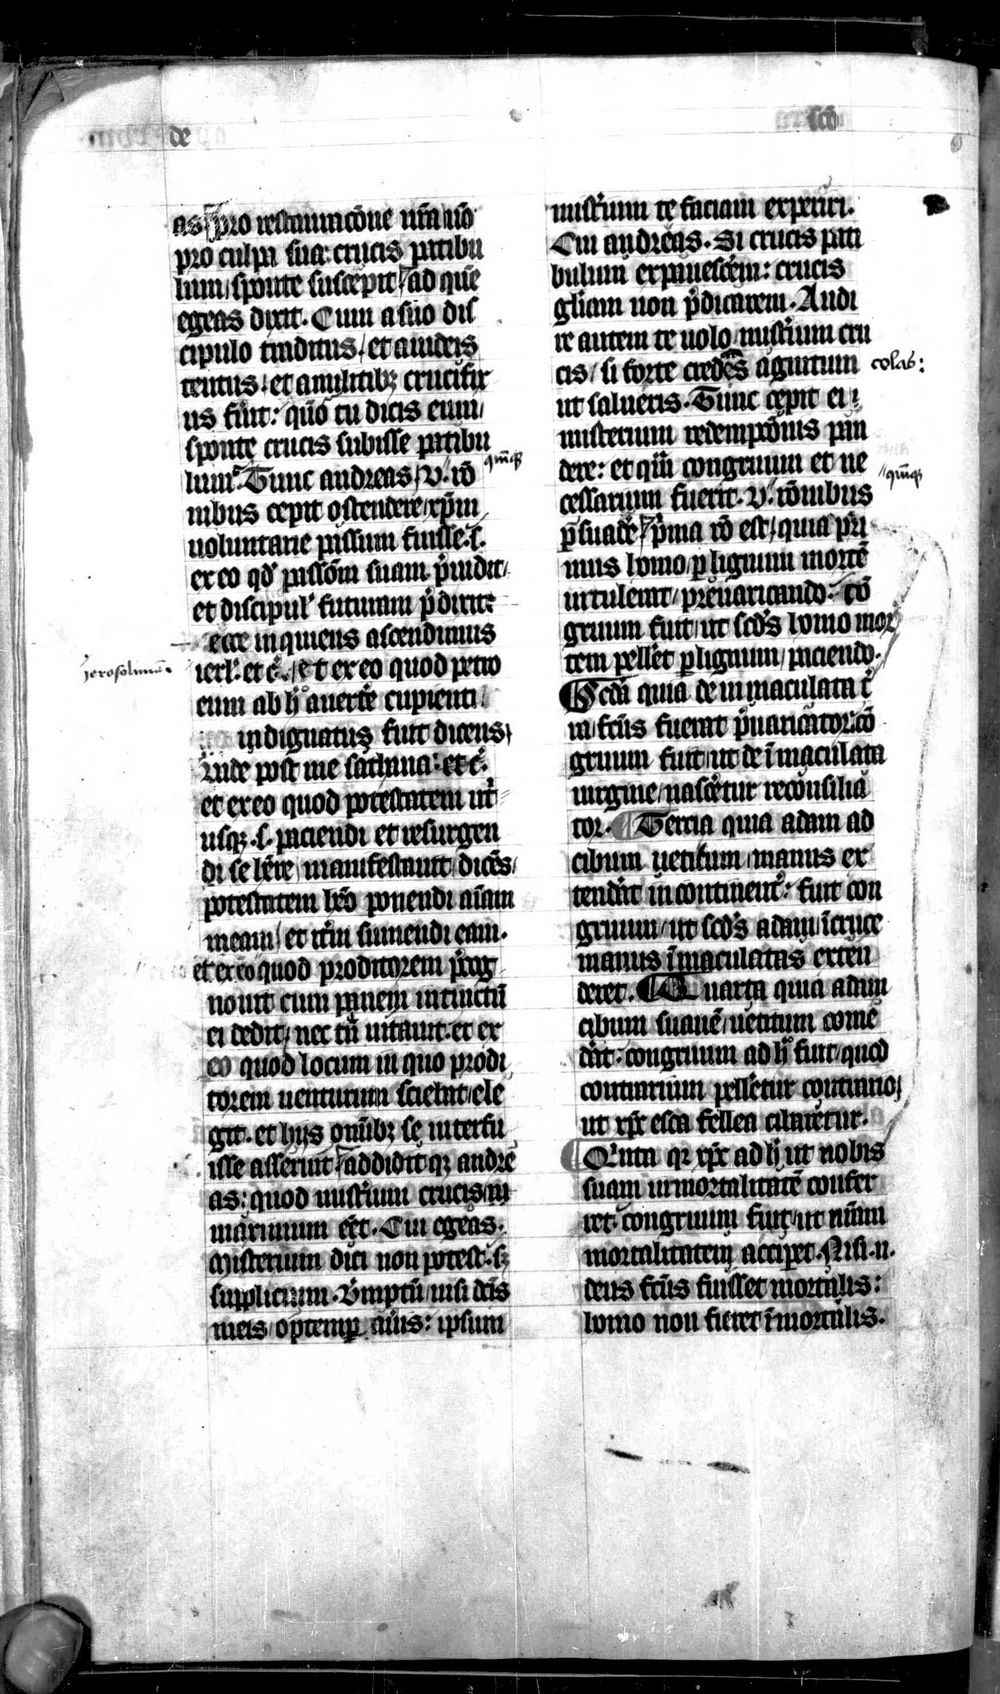 de
scō
as / pro restauracōne nr̄a nō
pro culpa sua: crucis patibu
lum / sponte suscepit / ad quē
egeas dixit. Cum a suo dis
cipulo traditus / et a iudeis
tentus / et a militibꝫ crucifix
us fūit: quō tu dicis eum /
sponte crucis subisse patibu
lum. Tunc andreas / v. rō qīnqꝫ
nibus cepit ostendere / xp̄m
uoluntarie passum fuisse. s.
ex eo qd' passōm suam p̄uidit /
et discipul' futuram p̄dixit:
ecce inquiens ascendimus
jerosolimā.
ierl'. et c'. / et ex eo quod petro
eum ab h' auert'e cupienti
indignatus fuit dicens /
Uade post me sathana: et c'.
et ex eo quod potestatem ut'
usqꝫ .s. paciendi et resurgen
di se hēre / manifestauit dicēs /
potestatem hēo ponendi aīam
meam / et it'm sumendi eam.
et ex eo quod proditorem p̄cog
nouit cum panem intinctū
ei dedit / nec tn̄ uitauit. et ex
eo quod locum in quo prodi
torem uenturum sciebat / ele
git. et hijs oīnibꝫ se interfu
isse asseruit / addidit qꝫ andre
as: quod mist'ium crucis m
maximum eēt. Cui egeas.
Misterium dici non potest. sꝫ
supplicium. Ue'mptn̄ / nisi dc̄is
meis optemp auis: ipsum
mist'ium te faciam experiri.
Cui andreas. Si crucis pati
bulum expauescēm: crucis
gl'iam non p̄dicarem. Audi
re autem te uolo / mist'ium cru
cis / si forte credēs agnitum colas:
ut salueris. Tunc cepit ei
misterium redempcōnis pan
dere: et qm̄ congruum et ne // qīnqꝫ
cessarium fuerit. v. rōnibus
p̄suad'e / p̄ma rō est / quia pri
mus homo / p lignum mortē
intulerat / preuaricando: cō
gruum fuit / ut scd's homo mor
tem pellēt p lignum / paciendo.
Scd'a quia de in maculata t'
ra / factus fuerat p̄uaricator: cō
gruum fuit / ut de īmaculata
uirgine / nascēt'ur reconsilia
tor. Tercia quia adam ad
cibum uetitum / manus ex
tend'at incontinent': fuit con
gruum / ut scd's adam / ī cruce
manus īmaculatas exten
deret. Quarta quia adam
cibum suauē / uetitum come
d'at: congruum ad h' fuit / quod
contrarium pellēt'ur contrario /
ut xp̄c esca fellea cibarēt'ur.
Quinta qr xp̄c ad h' ut nobis
suam inmortalitatē confer
ret. congruum fuit / ut nr̄am
mortalitatem accip'et. Nisi .n.
deus fcūs fuisset mortalis:
homo non fieret īmortalis.